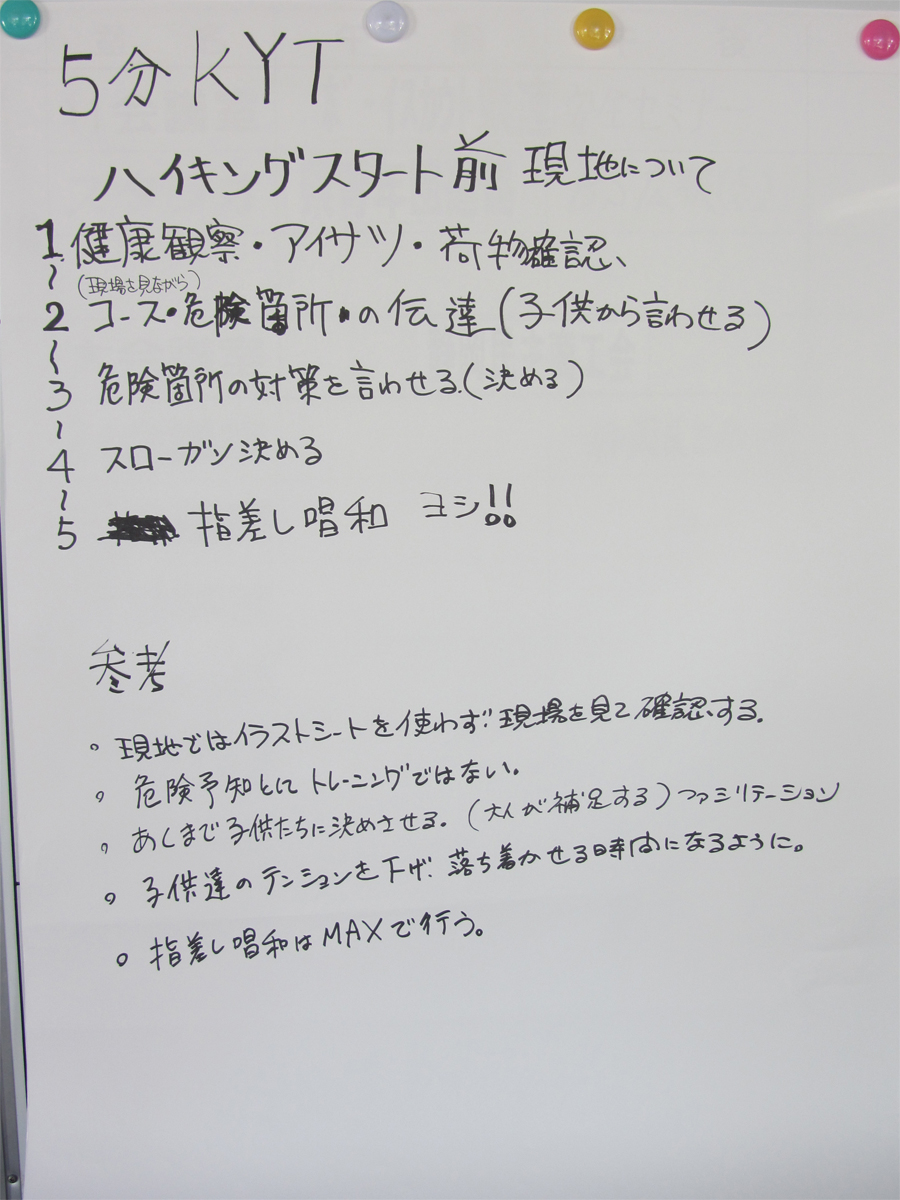 5分KYT
ハイキングスタート前 現地について
1 健康観察・アイサツ・荷物確認、
〜(現場を見ながら)
2 コース・危険箇所・の伝達(子供から言わせる)
〜
3 危険箇所の対策を言わせる.(決める)
〜
4 スローガン決める
〜
5 指差し唱和 ヨシ!!
参考
。現地ではイラストシートを使わず、現場を見て確認、する。
。危険予知とにトレーニングではない。
。あくまで子供たちに決めさせる。(大人が補足する)ファシリテーション
。子供達のテンションを下げ、落ち着かせる時間になるように。
。指差し唱和はMAXで行う。